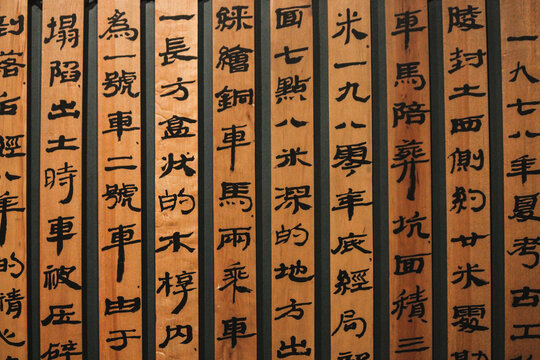 一九七八年夏考古工
陵封土西側約廿米處
車馬陪葬坑面積三
米一九八零年底經局
面七點八米深的地方出
綵繪銅車馬兩乘車
一長方盒狀的木椁内
為一號車二號車由于
塌陷出土時車被壓
落后經八年的精心